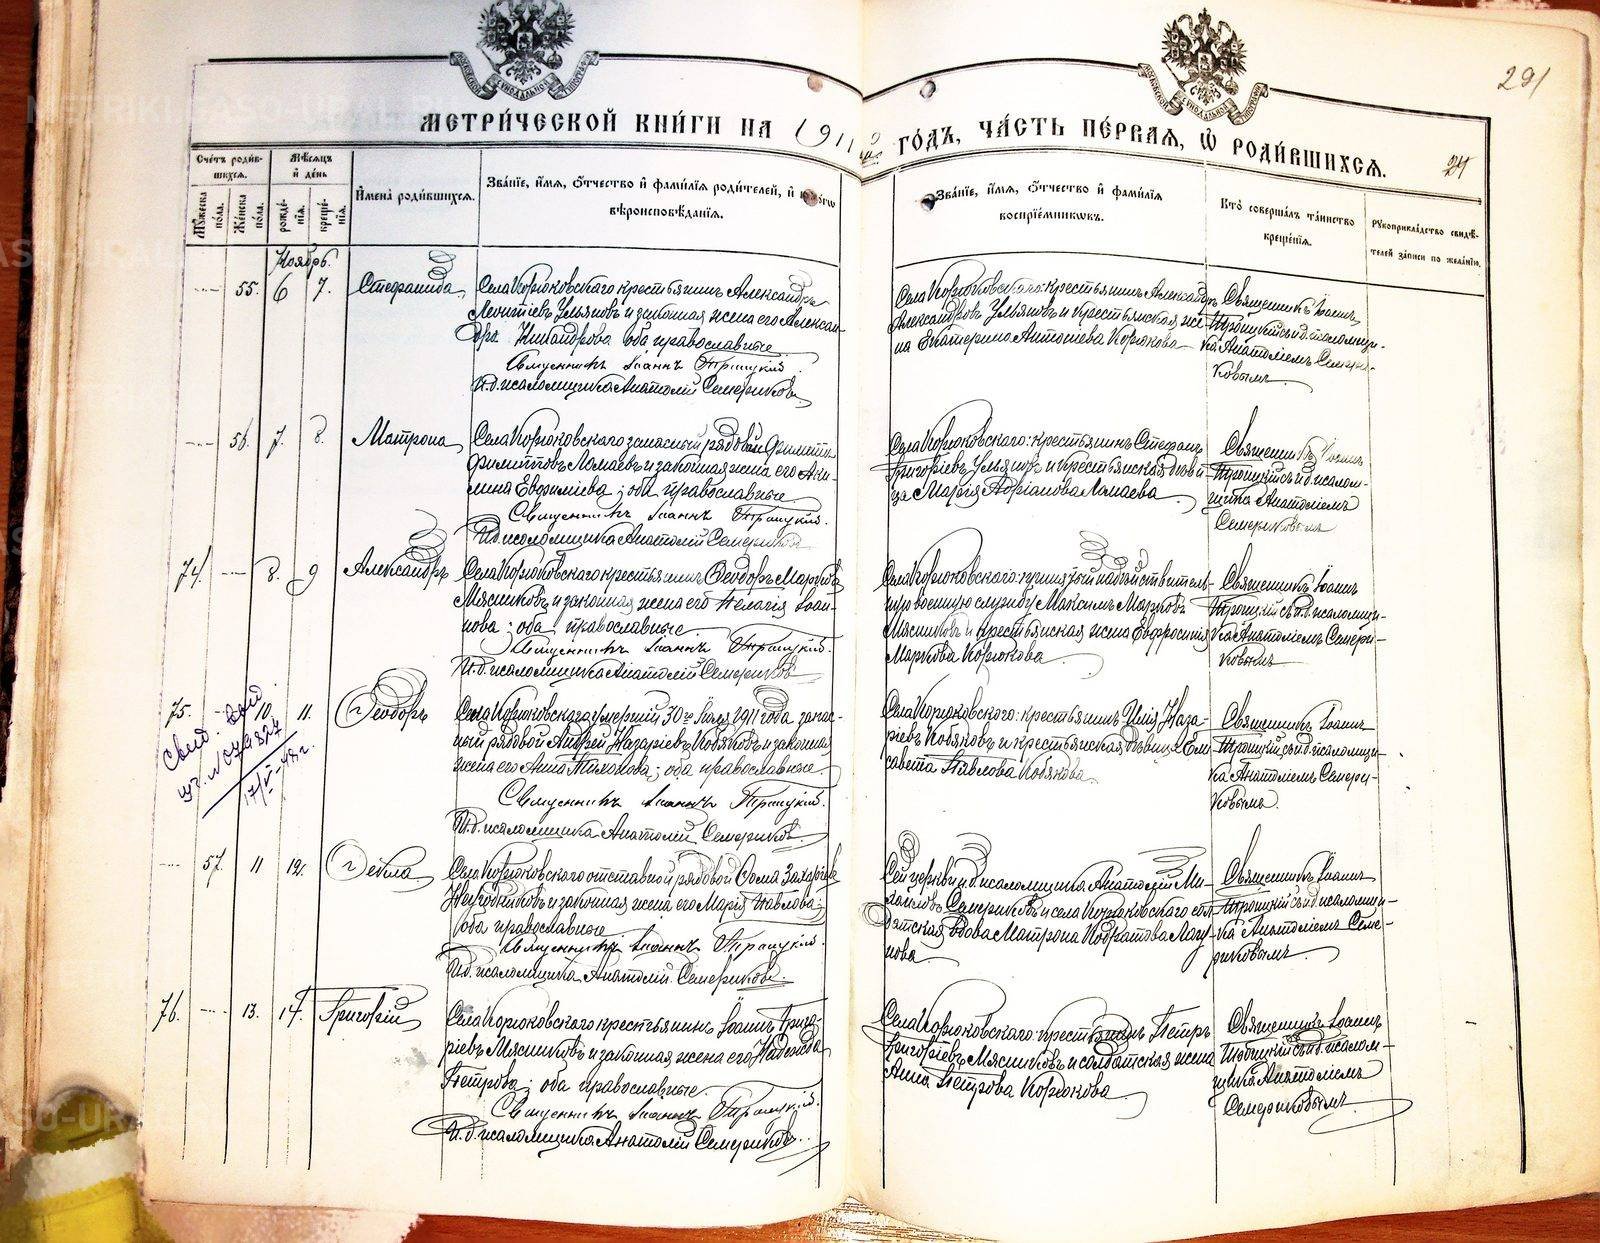 291
МОСКОВСКОЙ СѴНОДАЛЬНОЙ ТИПОГРАФІИ
МОСКОВСКОЙ СѴНОДАЛЬНОЙ ТИПОГРАФІИ
МЕТРИ́ЧЕСКОЙ КНИ́ГИ НА 1911 ГО́ДЪ, ЧА́СТЬ ПЕ́РВАЯ, Ѡ҆ РОДИ́ВШИХСЯ.
24
Сче́тъ роди́в-
шихся.
Мѣ́сяцъ
и҆ де́нь
Мꙋ́жеска по́ла.
Же́нска по́ла.
рожде́-
нїя.
креще́-
нїя.
И҆мена̀ роди́вшихся.
Зва́нїе, и҆́мя, ѻ҆́тчество и҆ фами́лїя роди́телей, и҆
вѣроисповѣ́данїя.
Зва́нїе, и҆́мя, ѻ҆́тчество и҆ фами́лїя
воспрїе́мникѡвъ.
Кто̀ соверша́лъ та́инство
креще́нїя.
Рꙋкоприкла́дство свидѣ́-
телей за́писи по жела́нїю.
Ноябрь.
55. 6 7. Стефанида
Села Корюковскаго крестьянинъ Александръ
Леонтіевъ Ульяновъ и законная жена его Алексан-
дра Никандрова оба православные
Священникъ Іоаннъ Троицкій.
И.д. псаломщика Анатолій Семериковъ.
Села Корюковскаго: крестьянинъ Александръ
Александровъ Ульяновъ и крестьянская же-
на Екатерина Антоніева Корюкова
Священникъ Іоаннъ
Троицкій съ и.д. псаломщи-
ка Анатоліемъ Семери-
ковымъ
56. 7. 8. Матрона
Села Корюковскаго запасный рядовой Филиппъ
Филипповъ Ломаевъ и законная жена его Аки-
лина Евфиміева; оба православные
Священникъ Іоаннъ Троицкій.
И.д. псаломщика Анатолій Семериковъ
Села Корюковскаго: крестьянинъ Стефанъ
Григоріевъ Ульяновъ и крестьянская дѣви-
ца Марія Адріанова Ломаева.
Священникъ Іоаннъ
Троицкій съ и.д. псалом-
щика Анатоліемъ
Семериковымъ
74. 8. 9 Александръ
Села Корюковскаго крестьянинъ Ѳеодоръ Марковъ
Мясниковъ и законная жена его Пелагія Іоан-
нова; оба православные
Священникъ Іоаннъ Троицкій.
И.д. псаломщика Анатолій Семериковъ
Села Корюковскаго: принятый на дѣйствитель-
ную военную службу Максимъ Марковъ
Мясниковъ и крестьянская жена Евфросинія
Маркова Корюкова
Священникъ Іоаннъ
Троицкій съ и.д. псаломщи-
ка Анатоліемъ Семери-
ковымъ
75. 10. 11. Ѳеодоръ
17/IV-48 г.
Села Корюковскаго умершій 30го Іюля 1911 года запас-
ный рядовой Андрей Назаріевъ Кобяковъ и законная
жена его Анна Тихонова; оба православные.
Священникъ Іоаннъ Троицкій.
И.д. псаломщика Анатолій Семериковъ
Села Корюковскаго: крестьянинъ Илія Наза-
ріевъ Кобяковъ и крестьянская дѣвица Ели-
савета Павлова Кобякова.
Священникъ Іоаннъ
Троицкій съ и.д. псаломщи-
ка Анатоліемъ Семери-
ковымъ.
57. 11 12. Ѳекла
Села Корюковскаго отставной рядовой Ѳома Захаріевъ
и законная жена его Марія Павлова;
оба православные
Священникъ Іоаннъ Троицкій.
И.д. псаломщика Анатолій Семериковъ.
Сей церкви и.д. псаломщика Анатолій Ми-
хайловъ Семериковъ и села Корюковскаго сол-
датская вдова Матрона Кодратова Лагу-
нова
Священникъ Іоаннъ
Троицкій съ и.д. псаломщи-
ка Анатоліемъ Семе-
риковымъ.
76. 13. 14. Григорій
Села Корюковскаго крестьянинъ Іоаннъ Григо-
ріевъ Мясниковъ и законная жена его Надежда
Петрова; оба православные.
Священникъ Іоаннъ Троицкій.
И.д. псаломщика Анатолій Семериковъ.
Села Корюковскаго: крестьянинъ Петръ
Григоріевъ Мясниковъ и солдатская жена
Анна Петрова Корюкова
Священникъ Іоаннъ
Троицкій съ и.д. псалом-
щика Анатоліемъ
Семериковымъ.